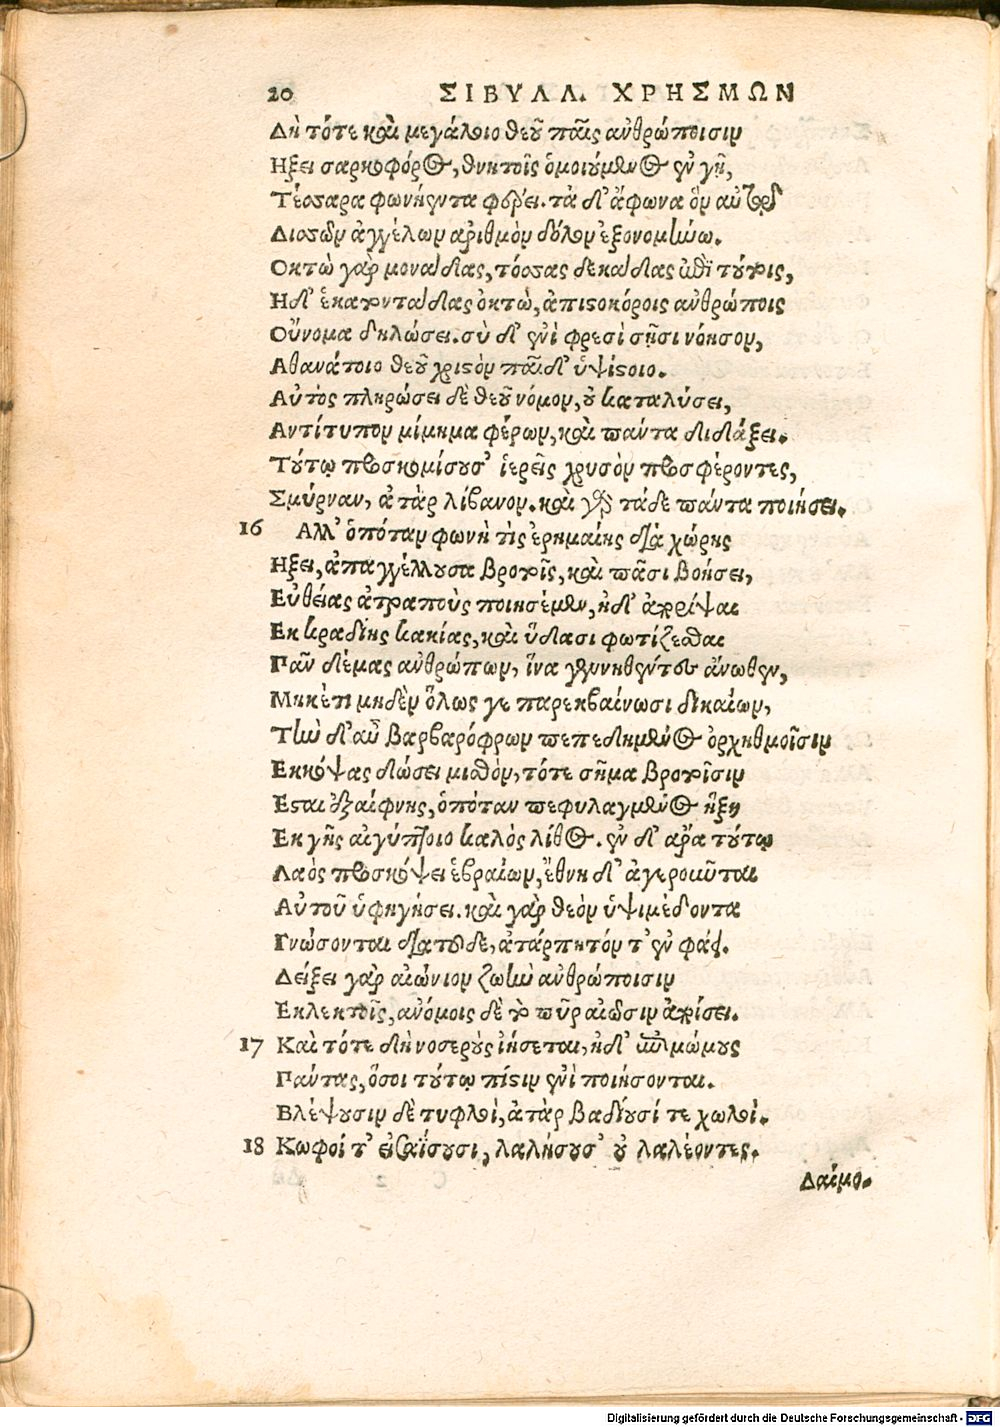 20 ΣΙΒΥΛΛ. ΧΡΗΣΜΩΝ
Δὴ τότε καὶ μεγάλοιο θεοῦ παῖς ἀνθρώποισιν
Ηξει σαρκοφόρος, θνητοῖς ὁμοιούμενος ἐν γῇ,
Τέσσαρα φωνήεντα φέρει. τὰ δ' ἄφωνα
Δισσῶν ἀγγέλων ἀριθμὸν δ' ὅλον ἐξονομήνω.
Οκτὼ γὰρ μονάδας, τόσσας δεκάδας ἐπὶ τούτοις,
Ηδ' ἑκατοντάδας ὀκτὼ, ἀπιστοκόροις ἀνθρώποις
Οὔνομα δηλώσει. σὺ δ' ἐνὶ φρεσὶ σῇσι νόησον,
Αθανάτοιο θεοῦ χριστὸν παῖδ' ὑψίστοιο.
Αὐτὸς πληρώσει δὲ θεοῦ νόμον, οὐ καταλύσει,
Αντίτυπον μίμημα φέρων, καὶ πάντα διδάξει.
Τούτῳ προσκομίσουσ' ἱερεῖς χρυσὸν προσφέροντες,
Σμύρναν, ἀτὰρ λίβανον. καὶ γὰρ τάδε πάντα ποιήσει.
16 Αλλ' ὁπόταν φωνὴ τὶς ἐρημαίης διὰ χώρης
Ηξει, ἀπαγγέλλουσα βροτοῖς, καὶ πᾶσι βοήσει,
Εὐθείας ἀτραποὺς ποιησέμεν, ἠδ' ἀπορρίψαι
Εκ κραδίης κακίας, καὶ ὕδασι φωτίζεσθαι
Παν δέμας ἀνθρώπων, ἵνα γεννηθέντες ἄνωθεν,
Μηκέτι μηδὲν ὅλως γε παρεκβαίνωσι δικαίων,
Τὴν δ' αὖ βαρβαρόφρων πεπεδημένος ὀρχηθμοῖσιν
Εκκόψας δώσει μισθὸν, τότε σῆμα βροτοῖσιν
Εσται ἐξαίφνης, ὁπόταν πεφυλαγμένος ἥξῃ
Εκ γῆς αἰγύπτοιο καλὸς λίθος. ἐν δ' ἄρα τούτῳ
Λαὸς προσκόψει ἑβραίων, ἔθνη δ' ἀγεροῦνται
Αὐτοῦ ὑφηγήσει. καὶ γὰρ θεὸν ὑψιμέδοντα
Γνώσονται διὰ τοῦδε, ἀτάρπητόν τ' ἐν φάει.
Δείξει γὰρ αἰώνιον ζωὴν ἀνθρώποισιν
Εκλεκτοῖς, ἀνόμοις δὲ τὸ πῦρ αἰῶσιν ἀποίσει.
17 Καὶ τότε δὴ νοσεροὺς ἰήσεται, ἠδ' ἐπιμώμους
Παντας, ὅσοι τούτῳ πίστιν ἐνὶ ποιήσονται.
Βλέψουσιν δὲ τυφλοὶ, ἀτὰρ βαδίουσί τε χωλοὶ.
18 Κωφοί τ' εἰσαΐσουσι, λαλήσουσ' οὐ λαλέοντες.
Δαίμο.
Digitalisierung gefördert durch die Deutsche Forschungsgemeinschaft - DFG